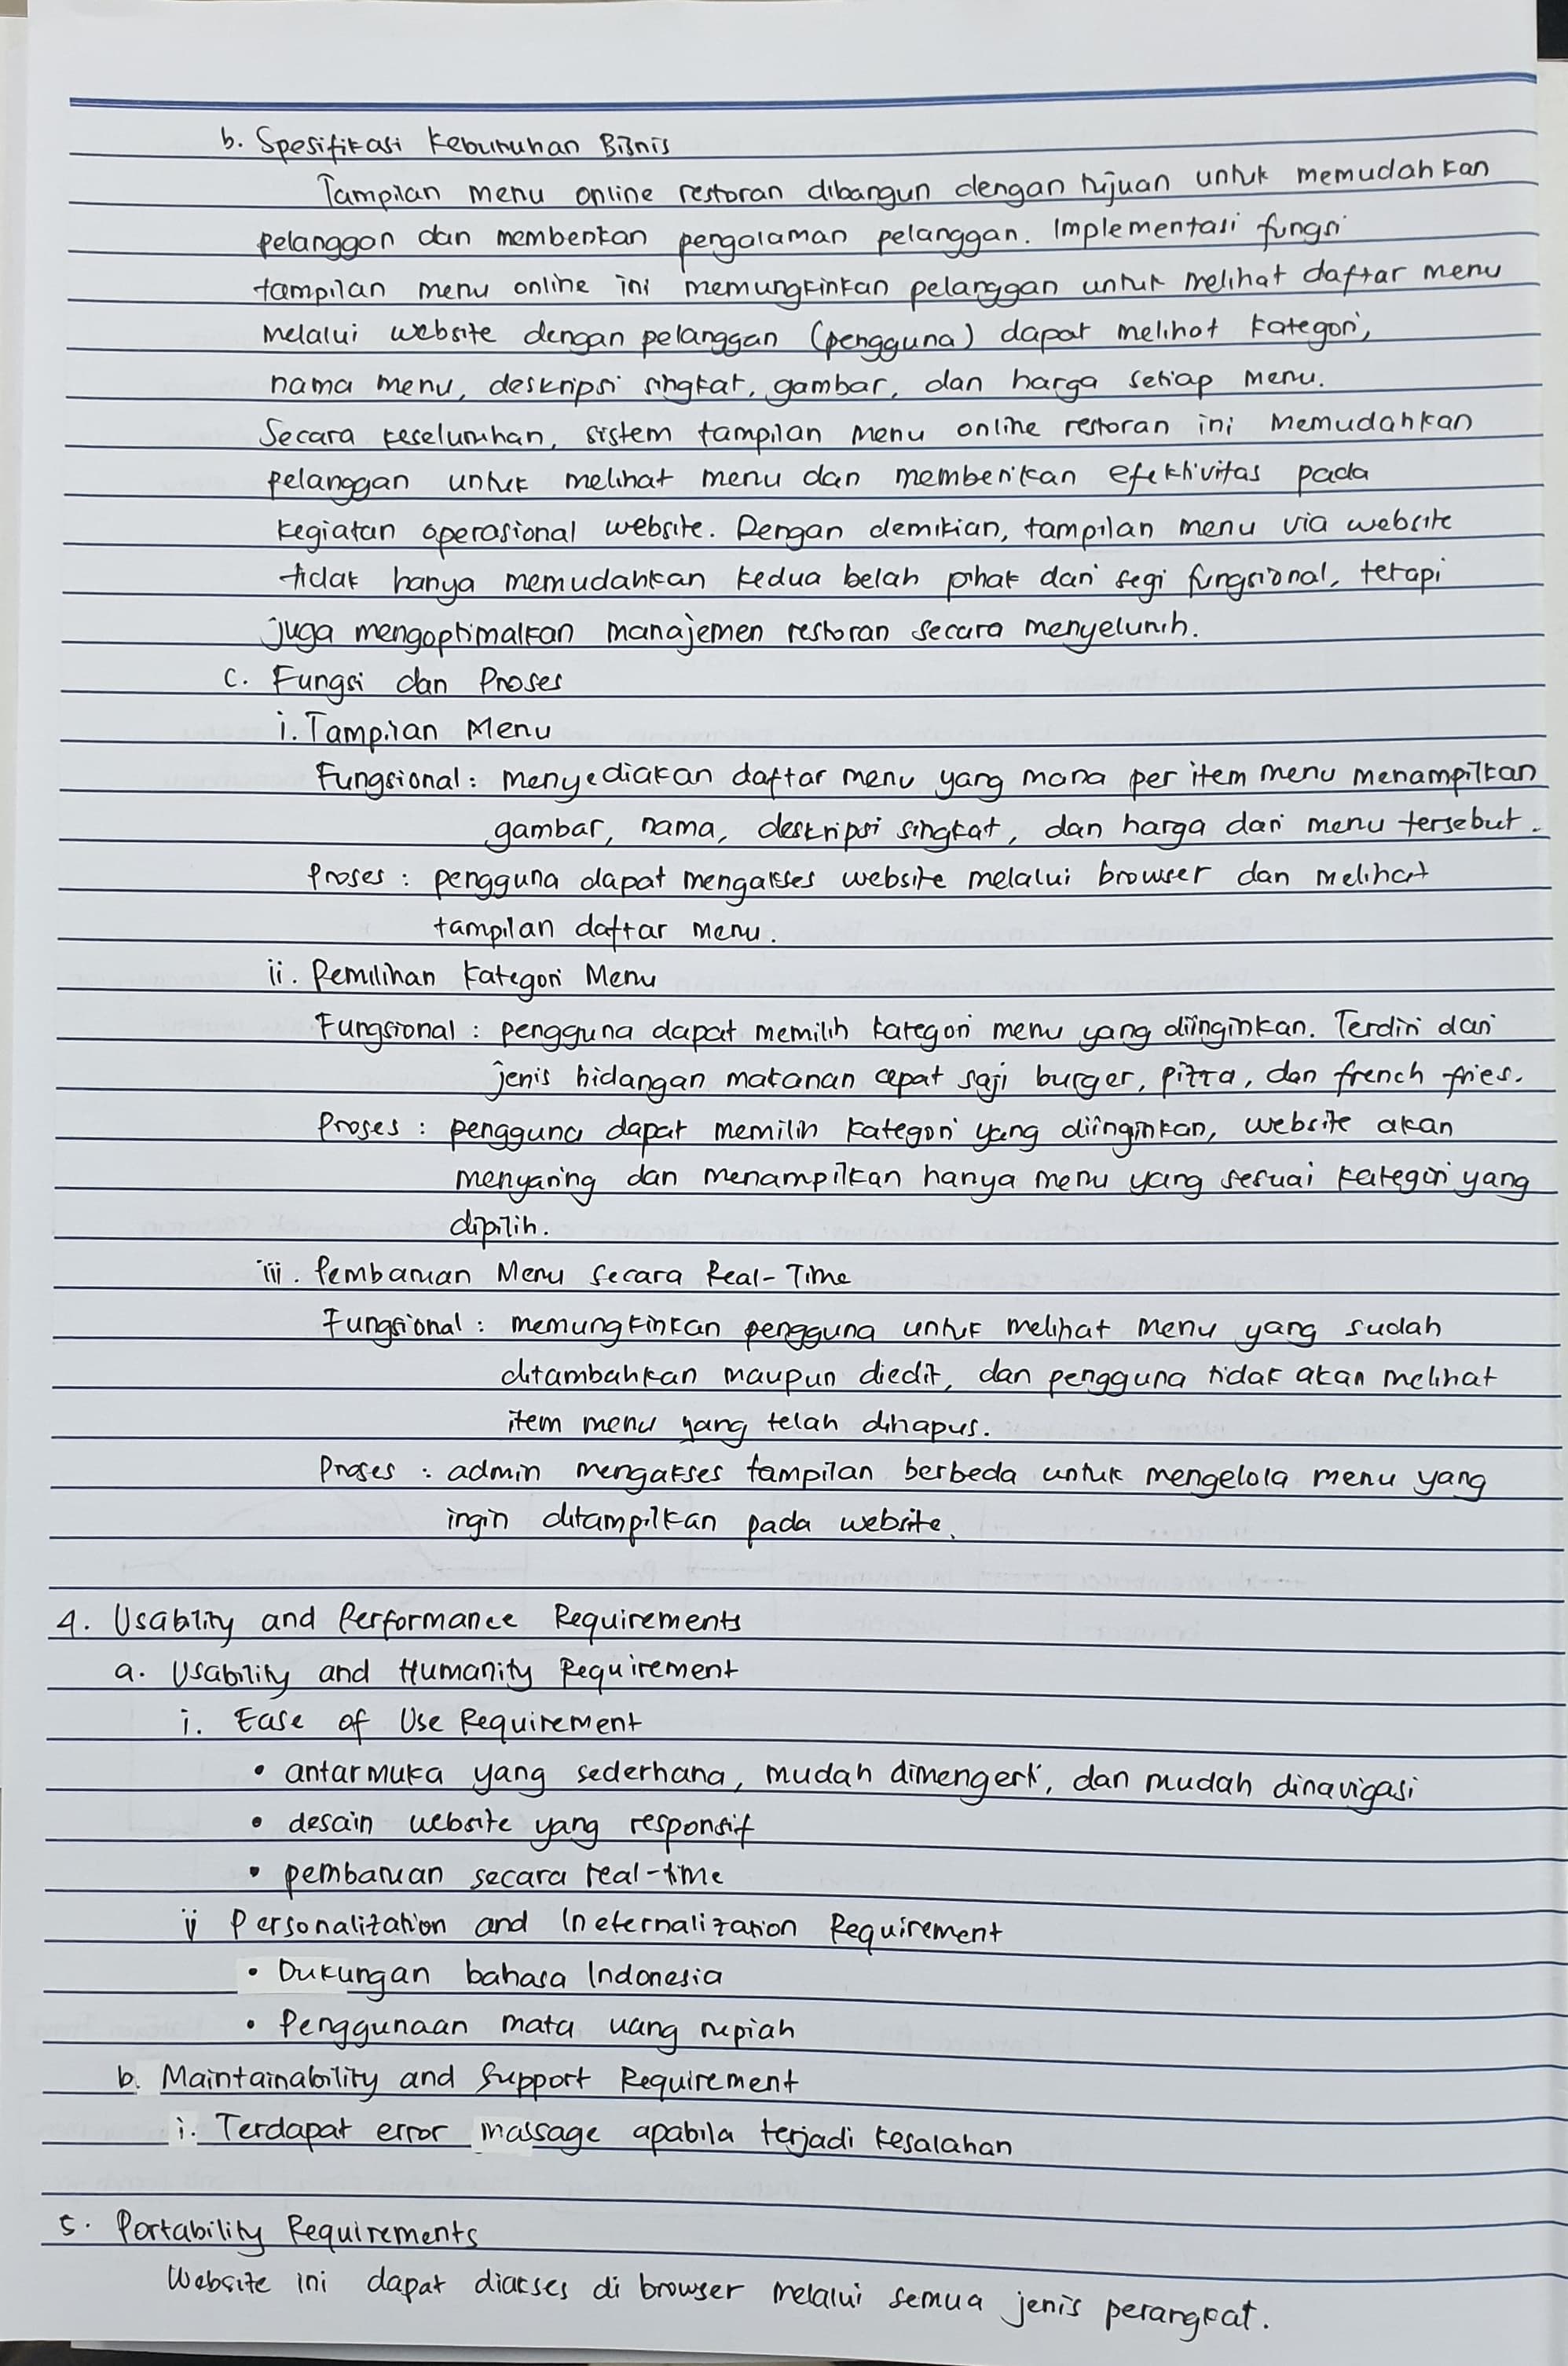 b. Spesifikasi Kebutuhan Bisnis
Tampilan menu online restoran dibangun dengan tujuan untuk memudahkan
pelanggan dan memberikan pengalaman pelanggan. Implementasi fungsi
tampilan menu online ini memungkinkan pelanggan untuk melihat daftar menu
melalui website dengan pelanggan (pengguna) dapat melihat kategori,
nama menu, deskripsi singkat, gambar, dan harga setiap menu.
Secara keseluruhan, sistem tampilan menu online restoran ini memudahkan
pelanggan untuk melihat menu dan memberikan efektivitas pada
kegiatan operasional website. Dengan demikian, tampilan menu via website
tidak hanya memudahkan kedua belah pihak dari segi fungsional, tetapi
juga mengoptimalkan manajemen restoran secara menyeluruh.
c. Fungsi dan Proses
i. Tampilan Menu
Fungsional : menyediakan daftar menu yang mana per item menu menampilkan
gambar, nama, deskripsi singkat, dan harga dari menu tersebut.
Proses : pengguna dapat mengakses website melalui browser dan melihat
tampilan daftar menu.
ii. Pemilihan Kategori Menu
Fungsional : pengguna dapat memilih kategori menu yang diinginkan. Terdiri dari
jenis hidangan makanan cepat saji burger, pizza, dan french fries.
Proses : pengguna dapat memilih kategori yang diinginkan, website akan
menyaring dan menampilkan hanya menu yang sesuai kategori yang
dipilih.
iii. Pembaruan Menu secara Real-Time
Fungsional : memungkinkan pengguna untuk melihat menu yang sudah
ditambahkan maupun diedit, dan pengguna tidak akan melihat
item menu yang telah dihapus.
Proses : admin mengakses tampilan berbeda untuk mengelola menu yang
ingin ditampilkan pada website.
4. Usability and Performance Requirements
a. Usability and Humanity Requirement
i. Ease of Use Requirement
• antarmuka yang sederhana, mudah dimengerti, dan mudah dinavigasi
• desain website yang responsif
• pembaruan secara real-time
ii Personalization and Ineternalization Requirement
• Dukungan bahasa Indonesia
• Penggunaan mata uang rupiah
b. Maintainability and Support Requirement
i. Terdapat error massage apabila terjadi kesalahan
5. Portability Requirements
Website ini dapat diakses di browser melalui semua jenis perangkat.